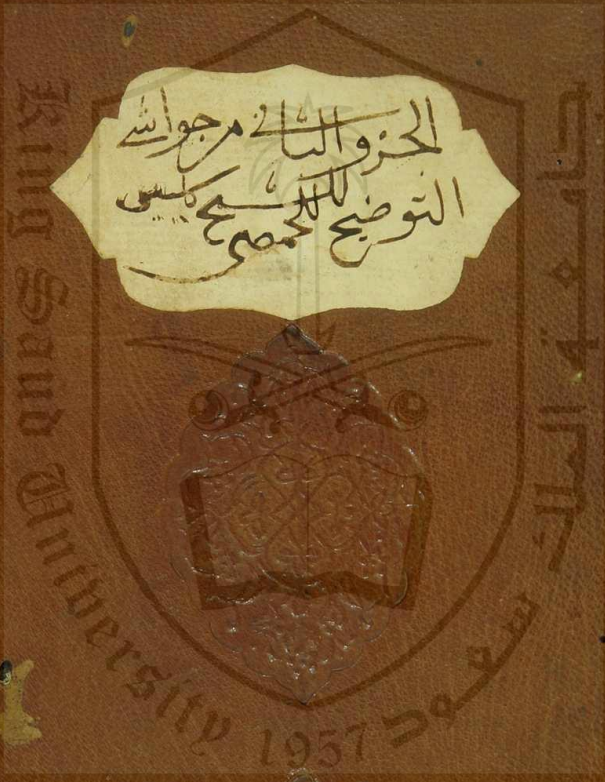 الجزو الثاني من حواشي
التوضيح للشيخ يسى
الحمصي
King Saud University 1957
جامعة الملك سعود